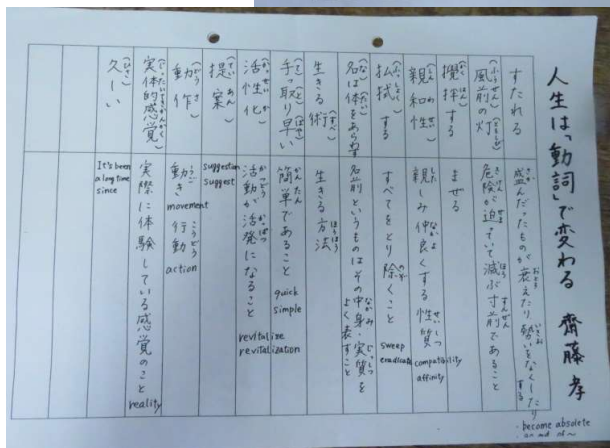 人生は「動詞」で変わる 齋藤孝
すたれる
盛(さか)んだったものが衰(おとろ)えたり勢(いきお)いをなくしたりする
・become absolete
風前の灯(ふうぜんのともしび)
危険(きけん)が迫(せま)っていて滅(ほろ)ぶ寸前(すんぜん)であること
攪拌(かくはん)する
まぜる
親和性(しんわせい)
親しみ仲良(なかよ)くする性質(せいしつ)
compatibility
affinity
払拭(ふっしょく)する
すべてをとり除(のぞ)くこと
sweep
eradicate
名は体(たい)をあらわす
名前というものはその中身(なかみ)・実質(じっしつ)を
よく表すこと
生きる術(すべ)
生きる方法(ほうほう)
手っ取り早い(てっとりばやい)
簡単(かんたん)であること
quick
simple
活性化(かっせいか)
活動(かつどう)が活発(かっぱつ)になること
revitalize
revitalization
提案(ていあん)
suggestion
suggest
動作(どうさ)
動(うご)き movement 行動(こうどう) action
実体的感覚(じったいてきかんかく)
実際に体験している感覚のこと reality
久(ひさ)しい
It's been
a long time
since